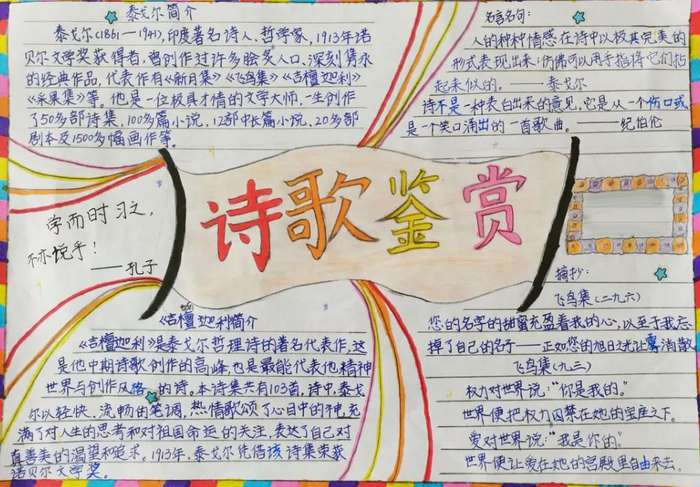 泰戈尔简介
泰戈尔(1861—1941),印度著名诗人、哲学家,1913年诺
贝尔文学奖获得者,曾创作过许多脍炙人口、深刻隽永
的经典作品,代表作有《新月集》《飞鸟集》《吉檀迦利》
《采果集》等。他是一位极具才情的文学大师,一生创作
了50多部诗集,100多篇小说,12部中长篇小说,20多部
剧本及1500多幅画作等。
名言名句:
人的种种情感在诗中以极其完美的
形式表现出来,仿佛可以用手指将它们拈
起来似的。——泰戈尔
诗不是一种表白出来的意见,它是从一个伤口或
是一个笑口涌出的一首歌曲。——纪伯伦
学而时习之,
不亦悦乎!
——孔子
诗歌鉴赏
《吉檀迦利》简介
《吉檀迦利》是泰戈尔哲理诗的著名代表作,这
是他中期诗歌创作的高峰,也是最能代表他精神
世界与创作风格的诗。本诗集共有103首,诗中,泰戈
尔以轻快、流畅的笔调,热情歌颂了心目中的神,充
满了对人生的思考和对祖国命运的关注,表达了自己对
真善美的渴望和追求。1913年,泰戈尔凭借该诗集荣获
诺贝尔文学奖。
摘抄:
飞鸟集(二九六)
您的名字的甜蜜充盈着我的心,以至于我忘
掉了自己的名字——正如您的旭日之光让雾消散
飞鸟集(九三)
权力对世界说:"你是我的。"
世界便把权力囚禁在她的宝座之下。
爱对世界说:"我是你的。"
世界便让爱在她的宫殿里自由来去。